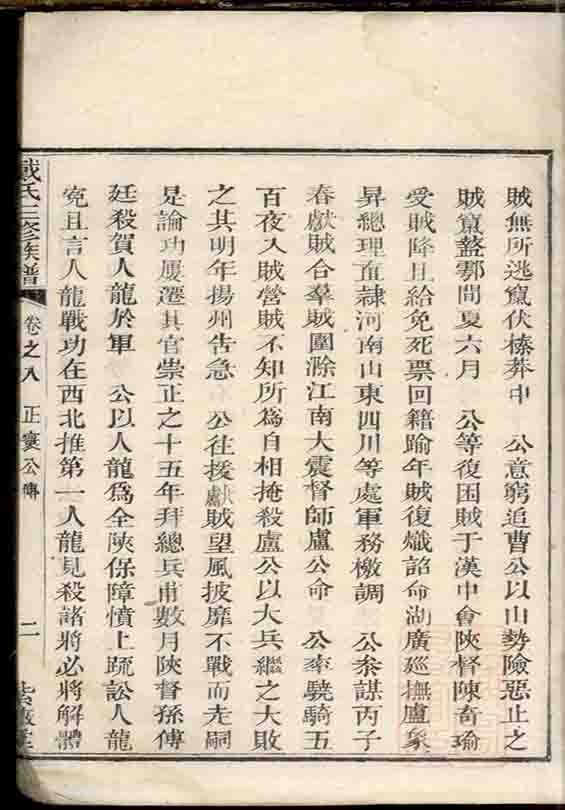 賊無所逃竄伏榛莽中　公意窮追曹公以山勢險惡止之
賊竄盩鄠間夏六月　公等復困賊于漢中會陝督陳奇瑜
受賊降且給免死票回籍踰年賊復熾詔命湖廣廵撫盧象
昇總理直隸河南山東四川等處軍務檄調　公叅謀丙子
春獻賊合羣賊圍滁江南大震督師盧公命　公率驍騎五
百夜入賊營賊不知所為自相掩殺盧公以大兵繼之大敗
之其明年揚州告急　公往援獻賊望風披靡不戰而走嗣
是論功屢遷其官崇正之十五年拜總兵甫數月陝督孫傅
廷殺賀人龍於軍　公以人龍為全陝保障憤上疏訟人龍
寃且言人龍戰功在西北推第一人龍見殺諸將必將解體
戴氏三修族譜　卷之八　正寰公傳　二